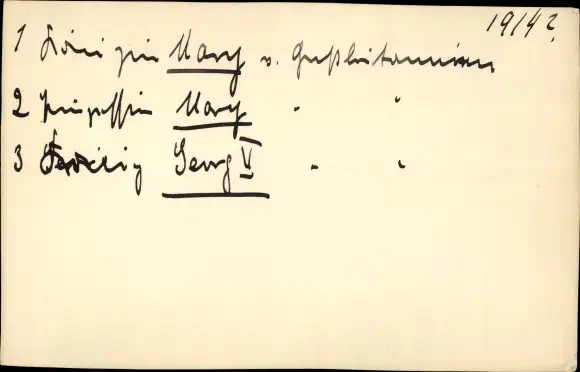 1914?
1 Königin Mary v. Großbritannien
2 Prinzessin Mary " "
3 König Georg V " "